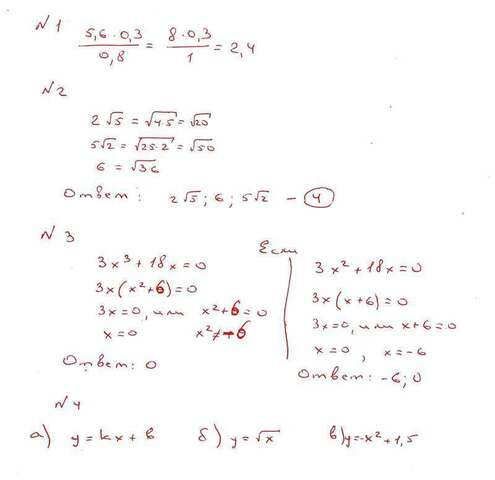 N 1 5,6·0,3/0,8 = 8·0,3/1 = 2,4
N 2
2√5 = √4·5 = √20
5√2 = √25·2 = √50
6 = √36
Ответ: 2√5; 6; 5√2 – 4
N 3
3x³ + 18x = 0
3x(x² + 6) = 0
3x = 0, или x² + 6 = 0
x = 0 x² ≠ -6
Ответ: 0
Если
3x² + 18x = 0
3x(x + 6) = 0
3x = 0, или x + 6 = 0
x = 0, x = -6
Ответ: -6; 0
N 4
а) y = kx + b б) y = √x в) y = -x² + 1,5